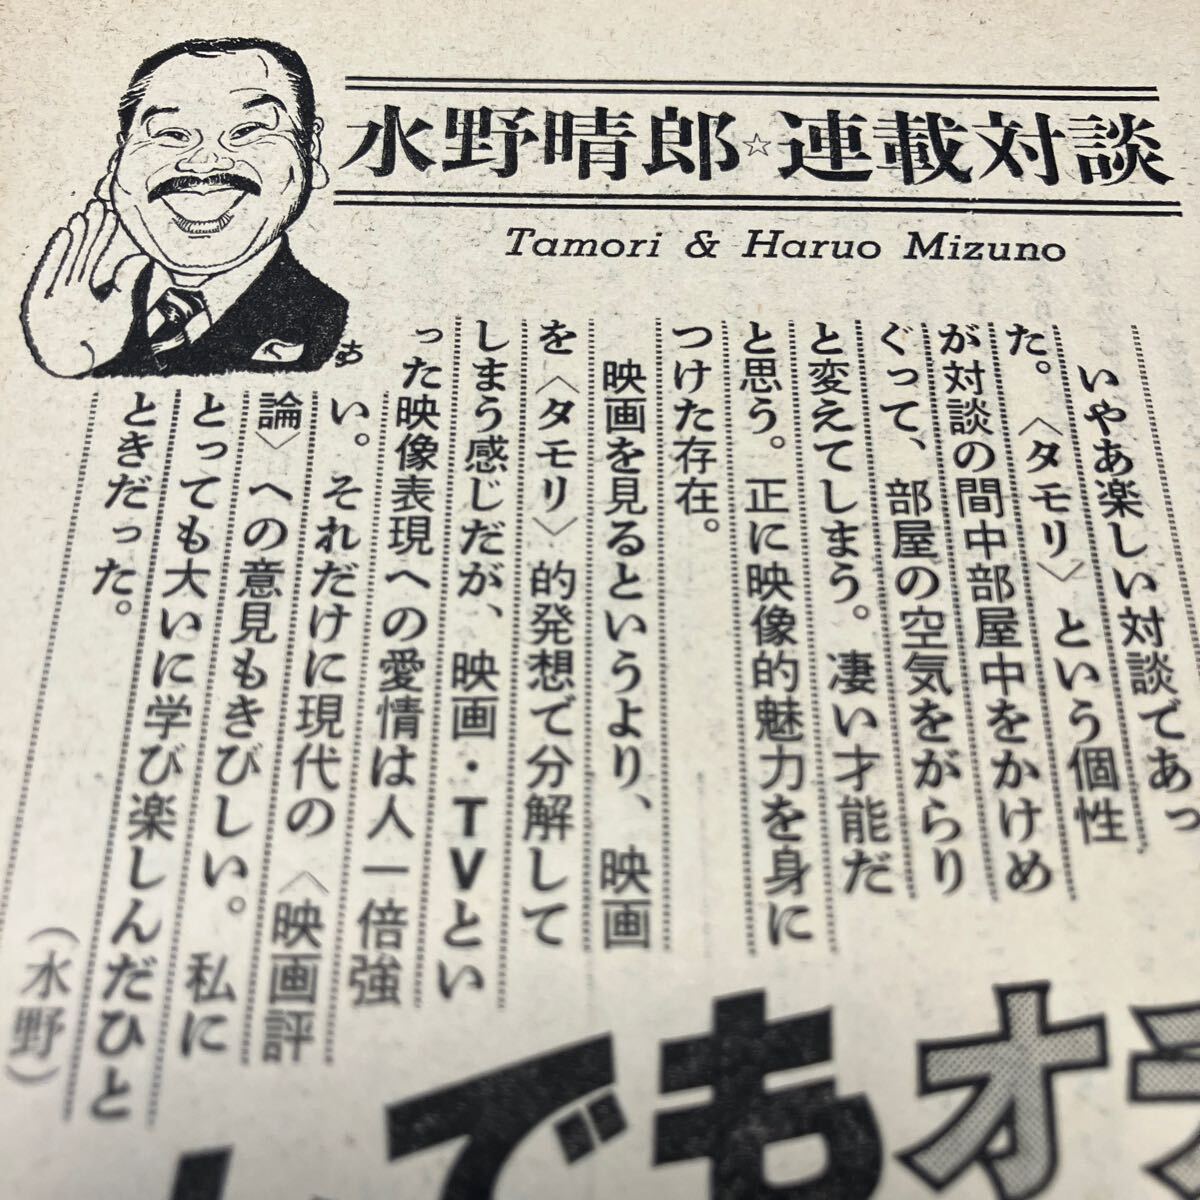 水野晴郎☆連載対談
Tamori & Haruo Mizuno
いやあ楽しい対談であっ
た。〈タモリ〉という個性
が対談の間中部屋中をかけめ
ぐって、部屋の空気をがらり
と変えてしまう。凄い才能だ
と思う。正に映像的魅力を身に
つけた存在。
映画を見るというより、映画
を〈タモリ〉的発想で分解して
しまう感じだが、映画・TVとい
った映像表現への愛情は人一倍強
い。それだけに現代の〈映画評
論〉への意見もきびしい。私に
とっても大いに学び楽しんだひと
ときだった。
（水野）
でもオ